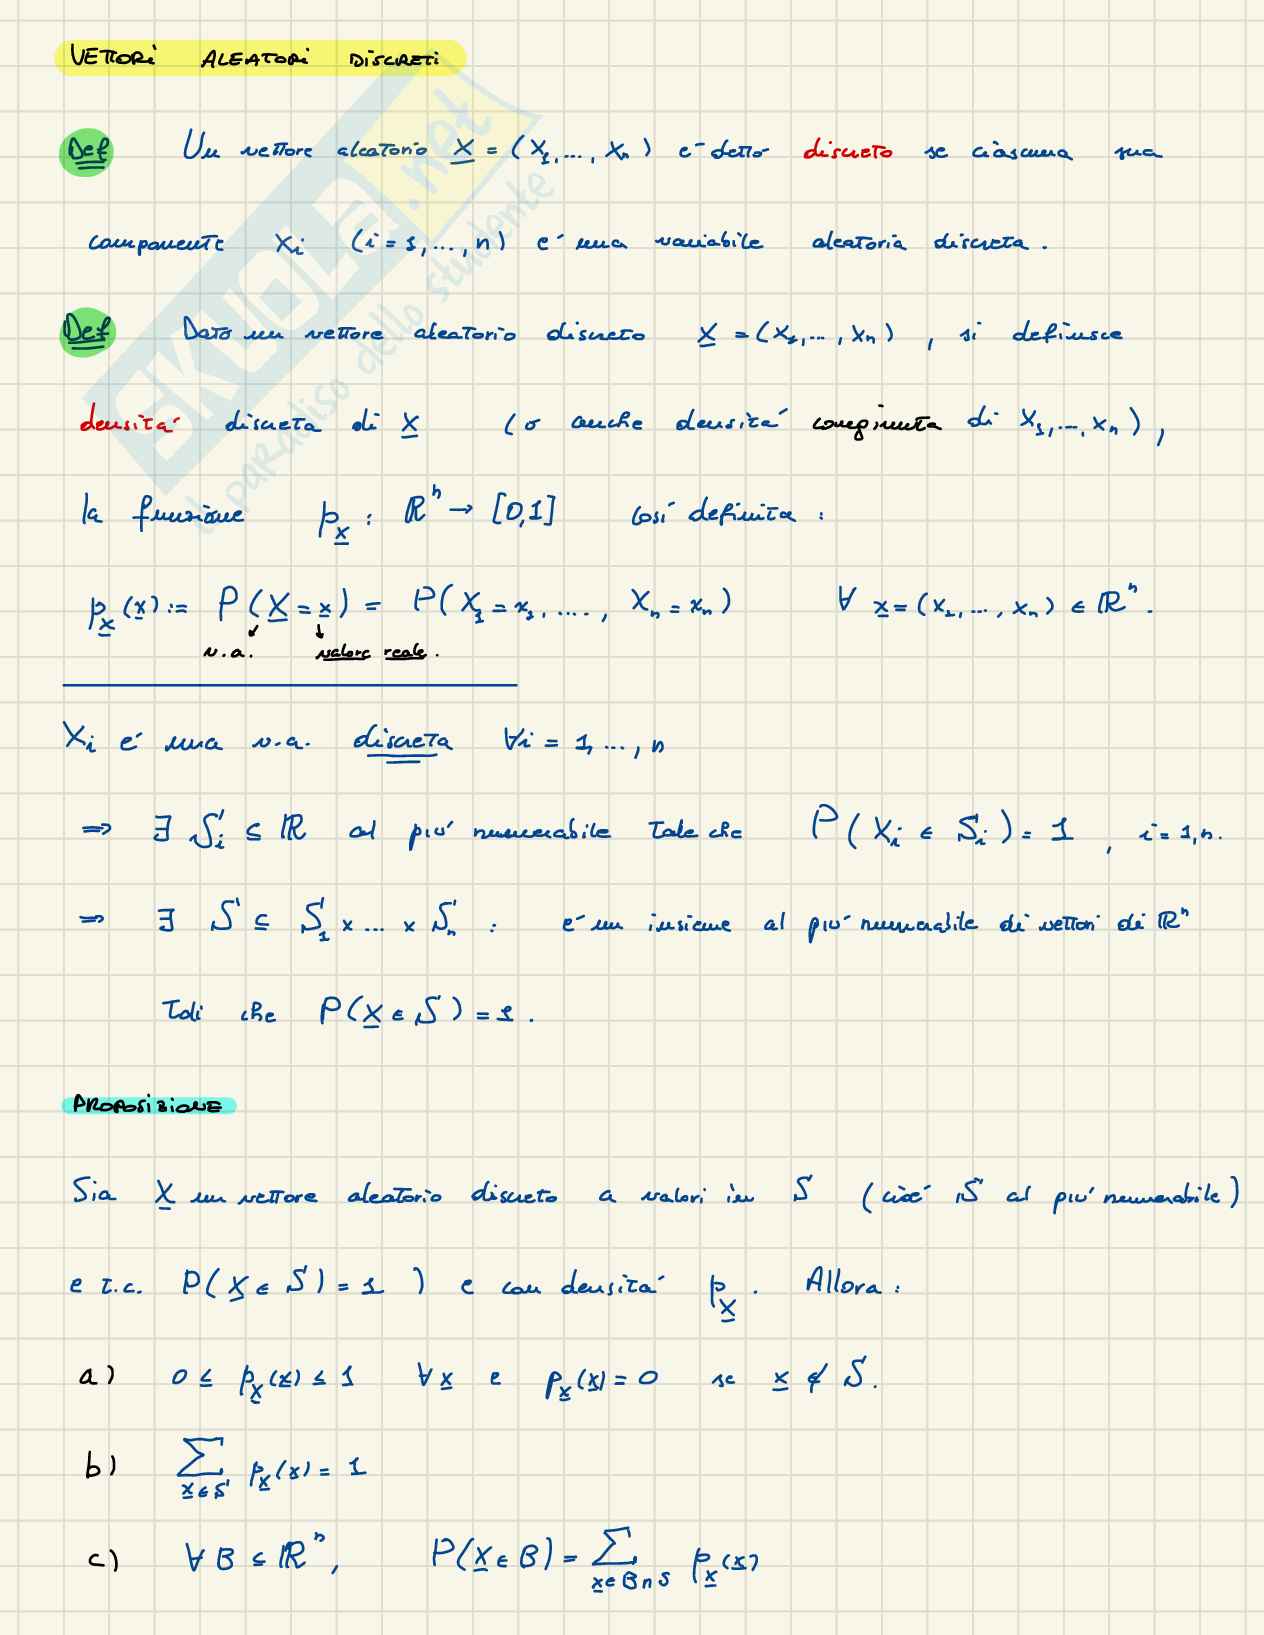 VETTORI ALEATORI DISCRETI
Def Un vettore aleatorio X = (X₁, ..., Xₙ) e' detto discreto se ciascuna sua
componente Xᵢ (i = 1, ..., n) e' una variabile aleatoria discreta.
Def Dato un vettore aleatorio discreto X = (X₁, ..., Xₙ), si definisce
densita' discreta di X (o anche densita' congiunta di X₁, ..., Xₙ),
la funzione p_X : ℝⁿ → [0,1] cosi' definita:
p_X(x) := P(X = x) = P(X₁ = x₁, ...., Xₙ = xₙ) ∀ x = (x₁, ..., xₙ) ∈ ℝⁿ.
v.a. valore reale.
Xᵢ e' una v.a. discreta ∀i = 1, ..., n
⇒ ∃ Sᵢ ⊆ ℝ al piu' numerabile tale che P(Xᵢ ∈ Sᵢ) = 1, i = 1, n.
⇒ ∃ S ⊆ S₁ × ... × Sₙ : e' un insieme al piu' numerabile di vettori di ℝⁿ
tali che P(X ∈ S) = 1.
PROPOSIZIONE
Sia X un vettore aleatorio discreto a valori in S (cioe' S al piu' numerabile)
e t.c. P(X ∈ S) = 1 ) e con densita' p_X. Allora:
a) 0 ≤ p_X(x) ≤ 1 ∀ x e p_X(x) = 0 se x ∉ S.
b) ∑_{x ∈ S} p_X(x) = 1
c) ∀ B ⊆ ℝⁿ, P(X ∈ B) = ∑_{x ∈ B ∩ S} p_X(x)
SKUOLA.net
il paradiso dello studente